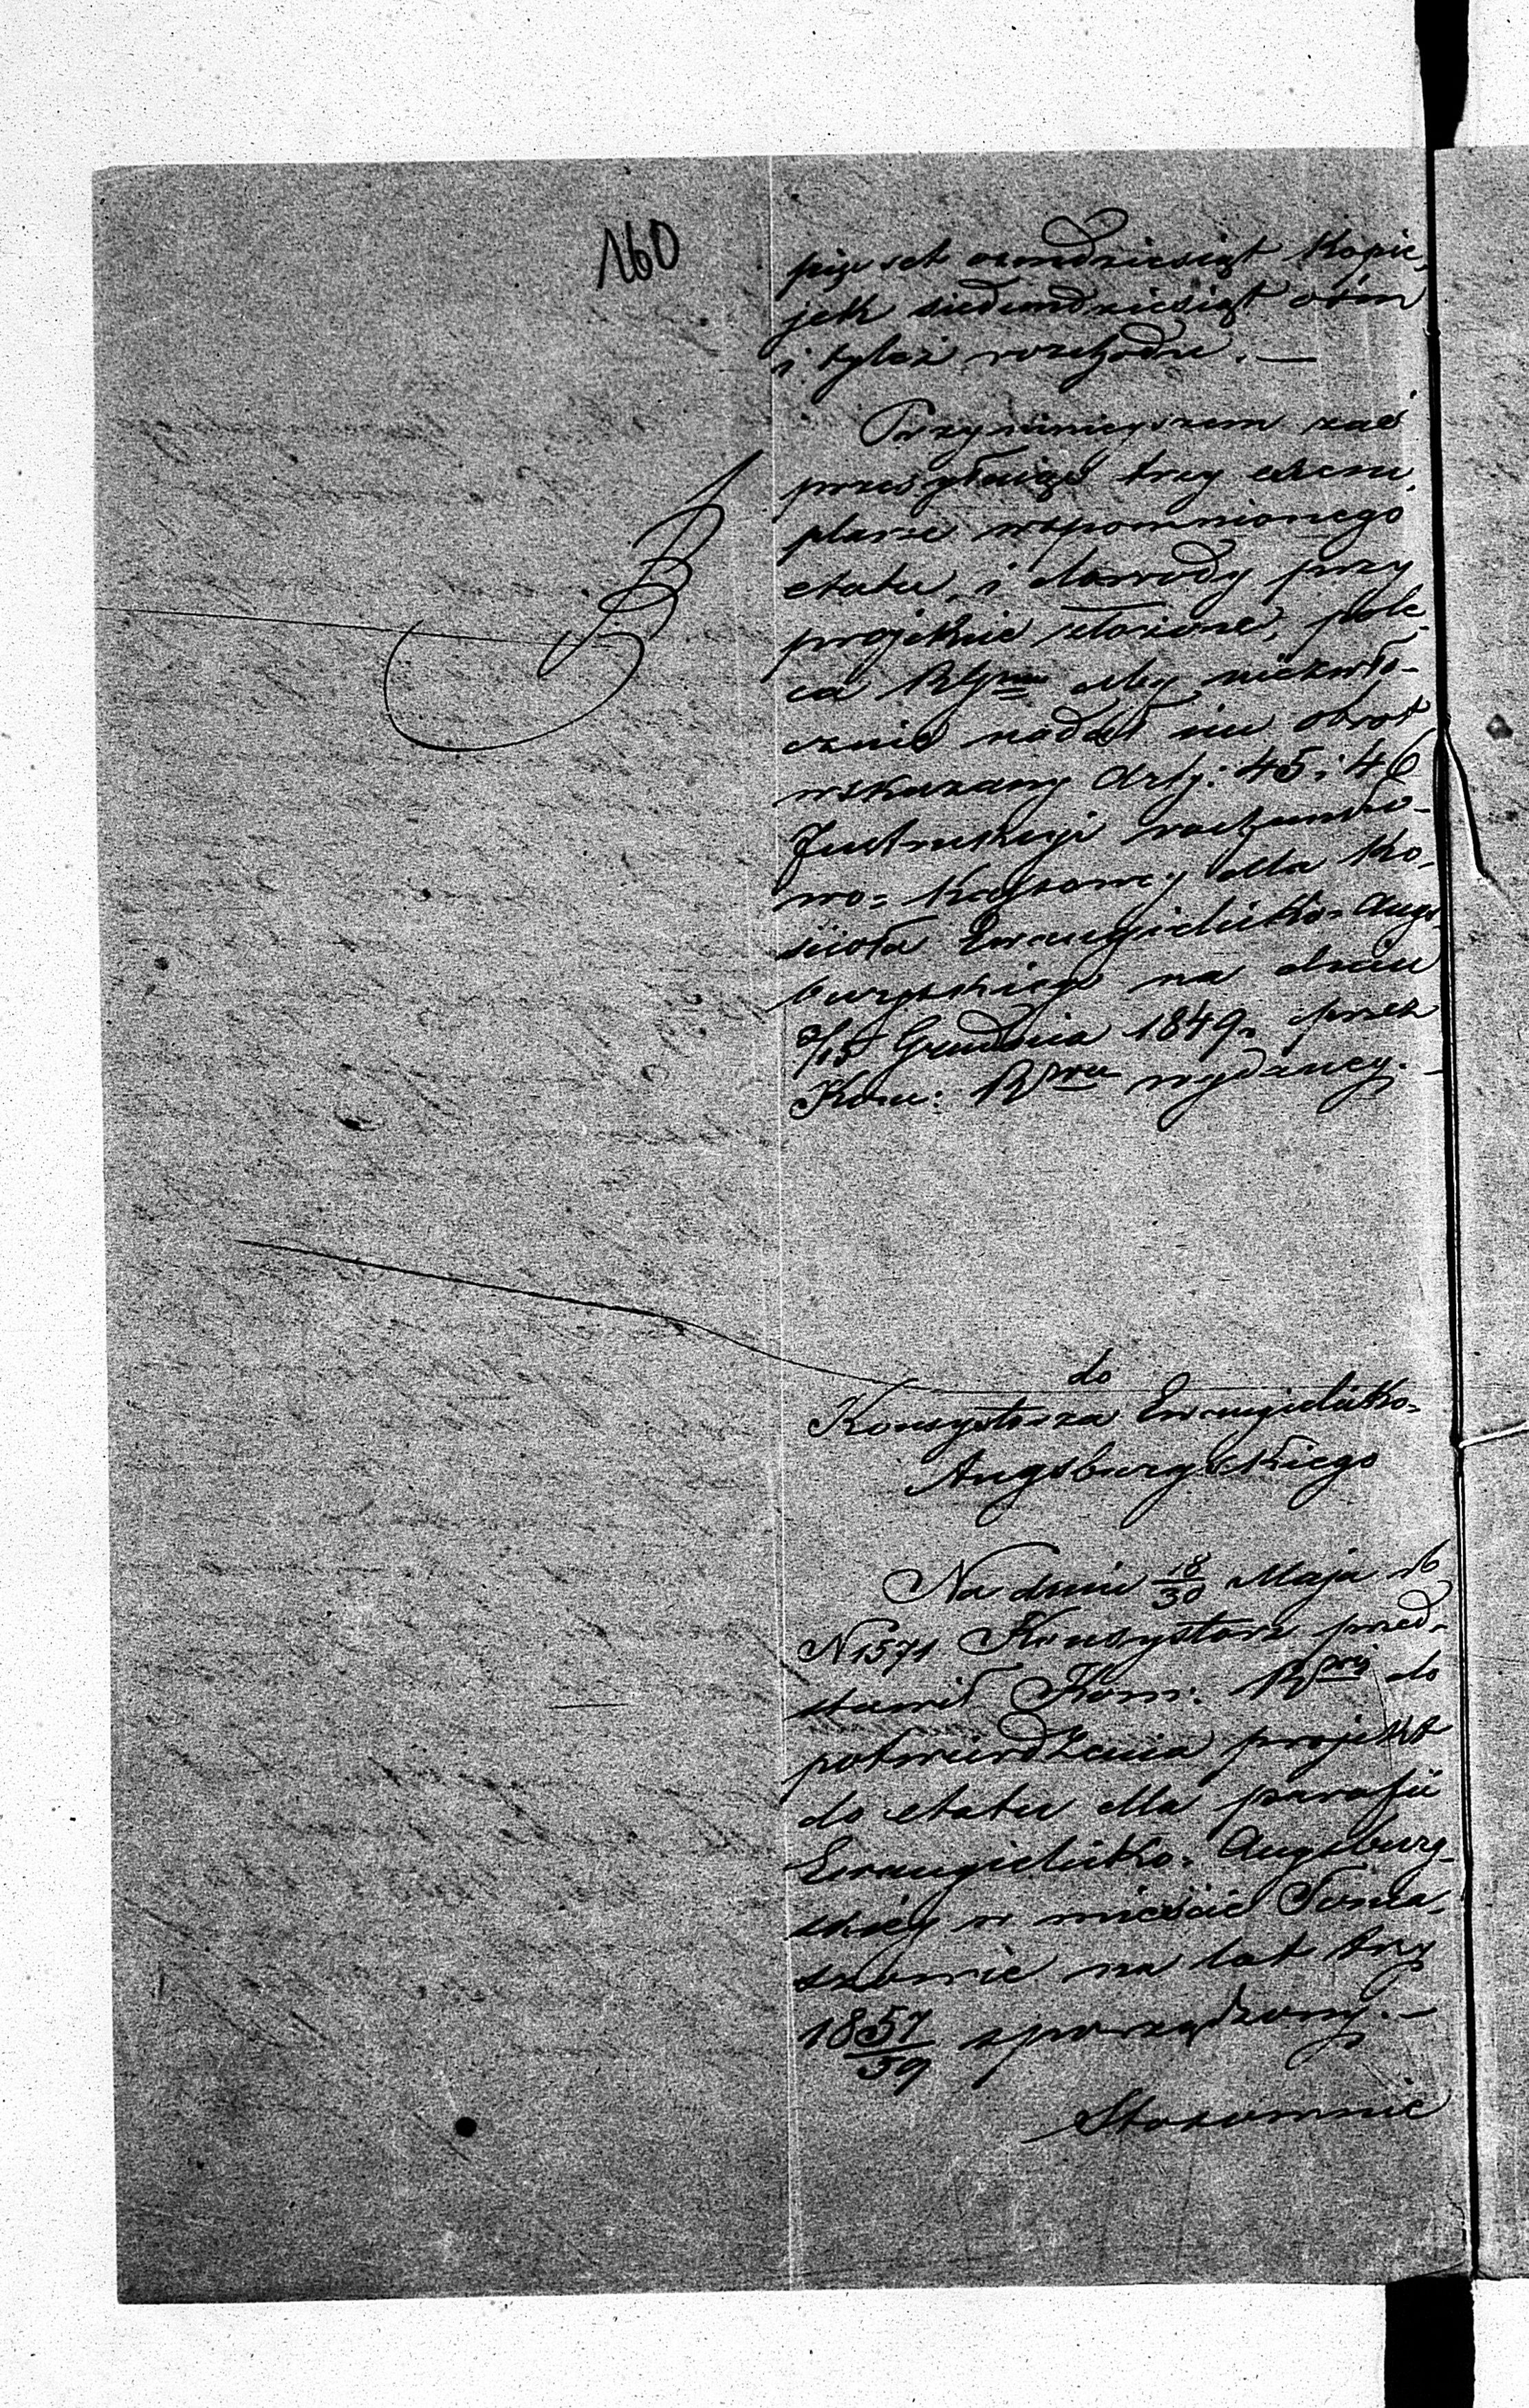 160
pięćset osmdziesiąt Kopie-
jek siedemdziesiąt ośm
i tyleż rozchodu. —
Przy niniejszem zaś
przesyłając trzy exem-
plarze wspomnionego
etatu, i dowody przy
projekcie złożone, pole-
ca RGnmu aby niezwło-
cznie nadał im obrot
wskazany Arty: 45 i 46
Instrukcji rachunko-
wo-Kassowej dla Ko-
ścioła Ewangielicko-Augs-
burgskiego na dniu
3/15 Grudnia 1849 r. przez
Kom: Rwą wydanej. —
do
Konsystorza Ewangielicko-
Augsburgskiego
Na dniu 18/30 Maja rb
N 1571 Konsystorz przed-
stawił Kom: Rwej do
potwierdzenia projekt
do etatu dla parafii
Ewangielicko-Augsburg-
skiej w mieście Toma-
szowie na lat trzy
1857/59 sporządzony. —
Stosownie